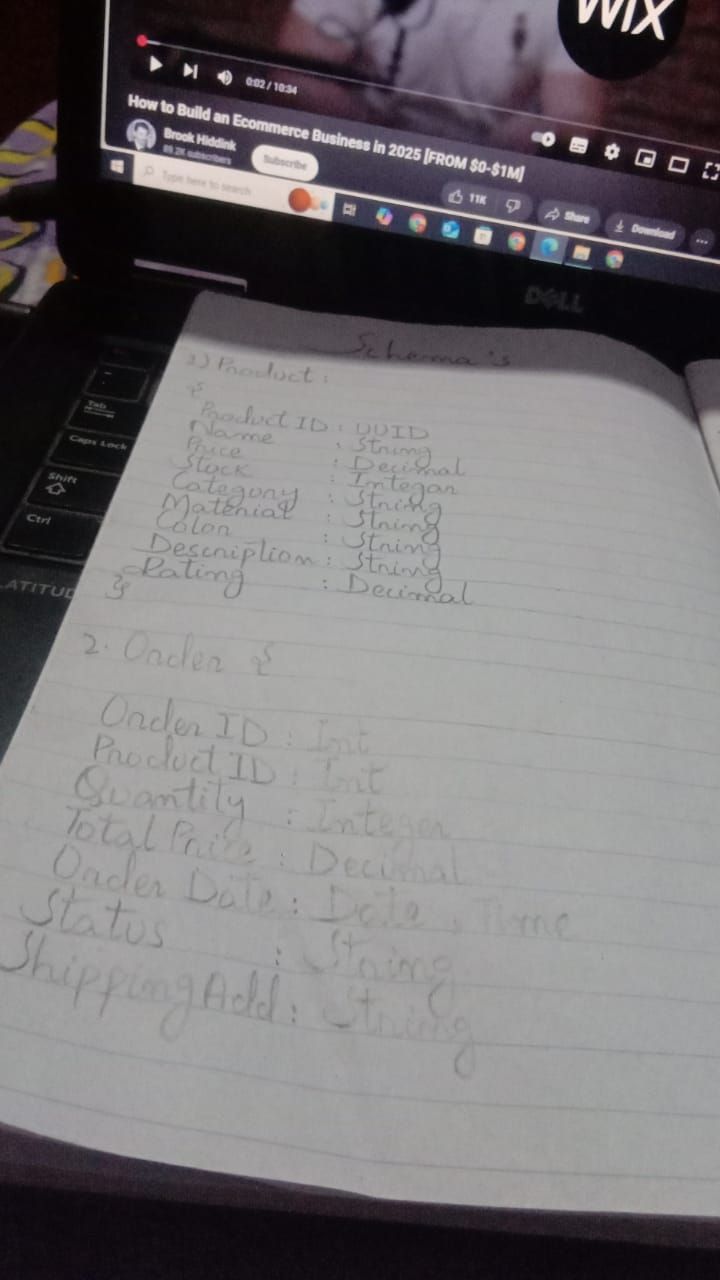 WIX
0:02 / 10:34
How to Build an Ecommerce Business in 2025 [FROM $0-$1M]
Brook Hiddink
89.2K subscribers
Subscribe
11K
Share
Download
Type here to search
DELL
Tab
Caps Lock
Shift
Ctrl
LATITUD
Schema's
1) Product :
{
Product ID : UUID
Name : String
Price : Decimal
Stock : Integar
Category : String
Material : String
Color : String
Description : String
Rating : Decimal
}
2. Order {
Order ID : Int
Product ID : Int
Quantity : Integer
Total Price : Decimal
Order Date : Date, Time
Status : String
Shipping Add : String